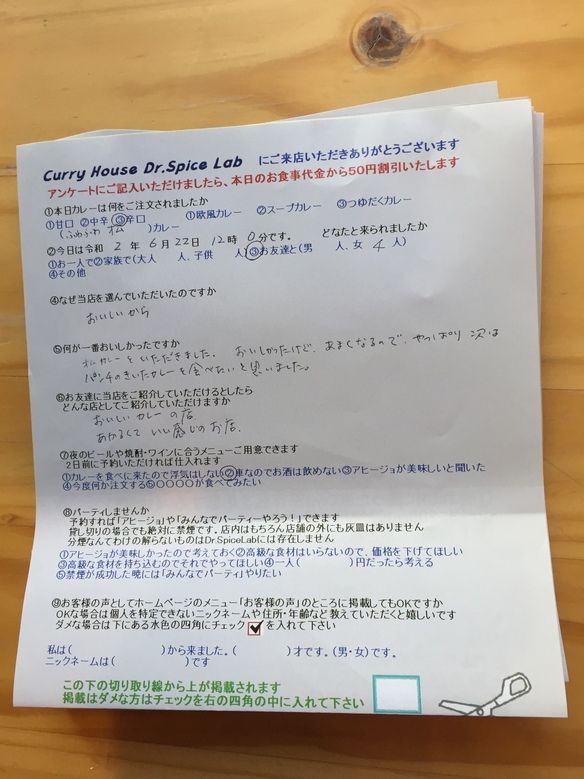 Curry House Dr.Spice Lab にご来店いただきありがとうございます
アンケートにご記入いただけましたら、本日のお食事代金から50円割引いたします
①本日カレーは何をご注文されましたか
①甘口 ②中辛 ③辛口 ①欧風カレー ②スープカレー ③つゆだくカレー
(ふわふわ オム )カレー
②今日は令和 2 年 6 月 22 日 12 時 0 分です。 どなたと来られましたか
①お一人で②家族で(大人 人、子供 人)③お友達と(男 人、女 4 人)
④その他
④なぜ当店を選んでいただいたのですか
おいしいから
⑤何が一番おいしかったですか
オムカレーをいただきました。おいしかったけど、あまくなるので、やっぱり次は
パンチのきいたカレーを食べたいと思いました。
⑥お友達に当店をご紹介していただけるとしたら
どんな店としてご紹介していただけますか
おいしいカレーの店
あかるくていい感じのお店。
⑦夜のビールや焼酎・ワインに合うメニューご用意できます
2日前に予約いただければ仕入れます
①カレーを食べに来たので浮気はしない②車なのでお酒は飲めない③アヒージョが美味しいと聞いた
④今度何か注文する⑤〇〇〇〇が食べてみたい
⑧パーティしませんか
予約すれば「アヒージョ」や「みんなでパーティーやろう!」できます
貸し切りの場合でも絶対に禁煙です。店内はもちろん店舗の外にも灰皿はありません
分煙なんてわけの解らないものはDr.SpiceLabには存在しません
①アヒージョが美味しかったので考えておく②高級な食材はいらないので、価格を下げてほしい
③高級な食材を持ち込むのでそれでやってほしい④一人( )円だったら考える
⑤禁煙が成功した暁には「みんなでパーティ」やりたい
⑨お客様の声としてホームページのメニュー「お客様の声」のところに掲載してもOKですか
OKな場合は個人を特定できないニックネームや住所・年齢など教えていただくと嬉しいです
ダメな場合は下にある水色の四角にチェック を入れて下さい
私は( )から来ました。( )才です。(男・女)です。
ニックネームは( )です
この下の切り取り線から上が掲載されます
掲載はダメな方はチェックを右の四角の中に入れて下さい